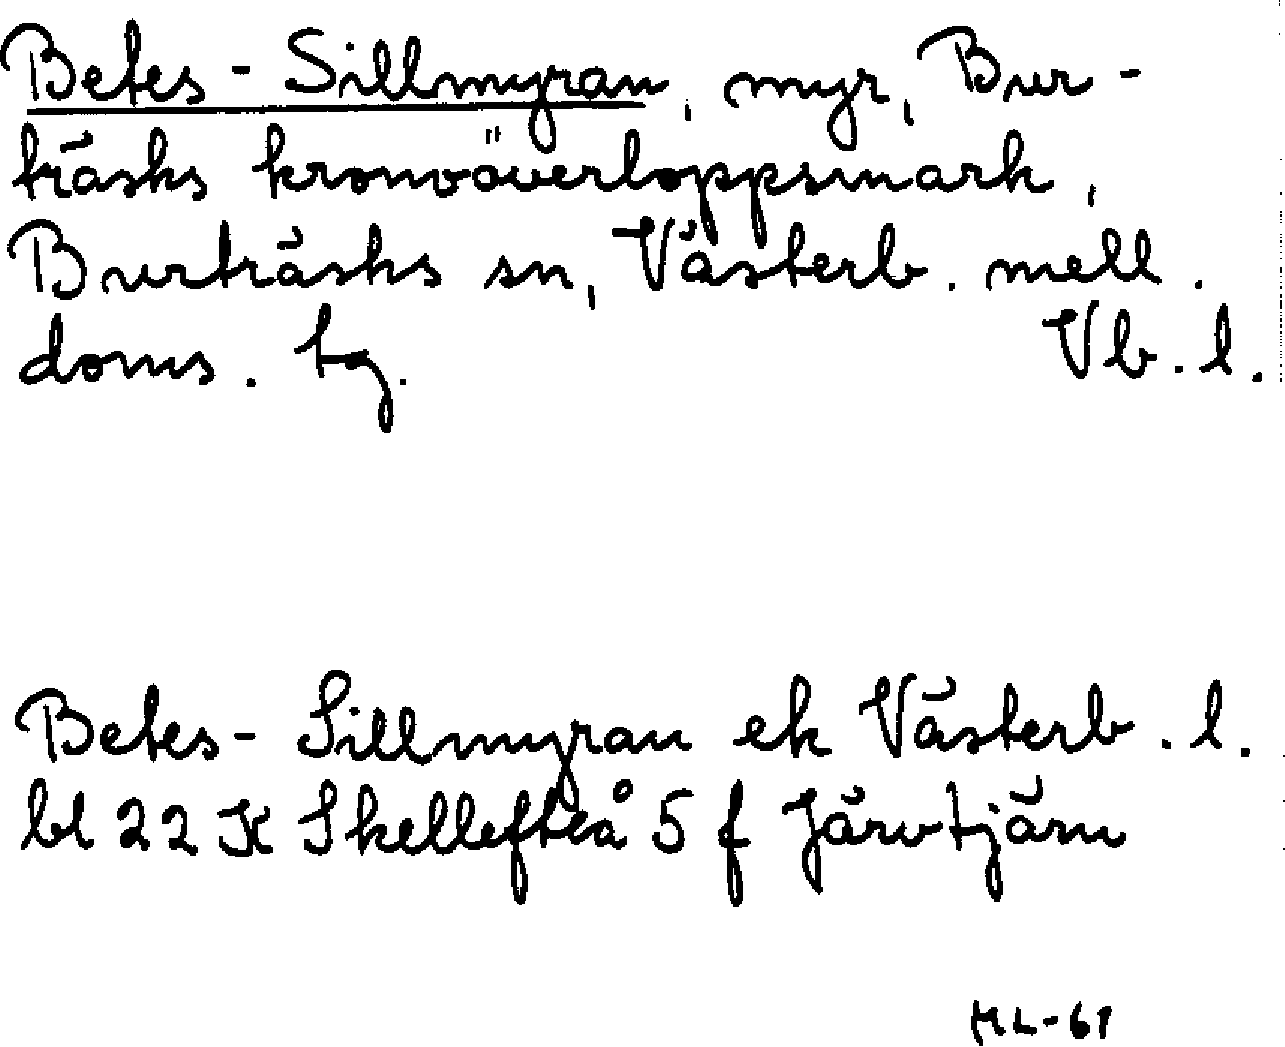 Betes-Sillmyran, myr, Bur-
träsks kronoöverloppsmark,
Burträsks sn, Västerb. mell.
doms. tg. Vb. l.
Betes-Sillmyran ek Västerb. l.
bl 22 K Skellefteå 5 f Järvtjärn
ML-61